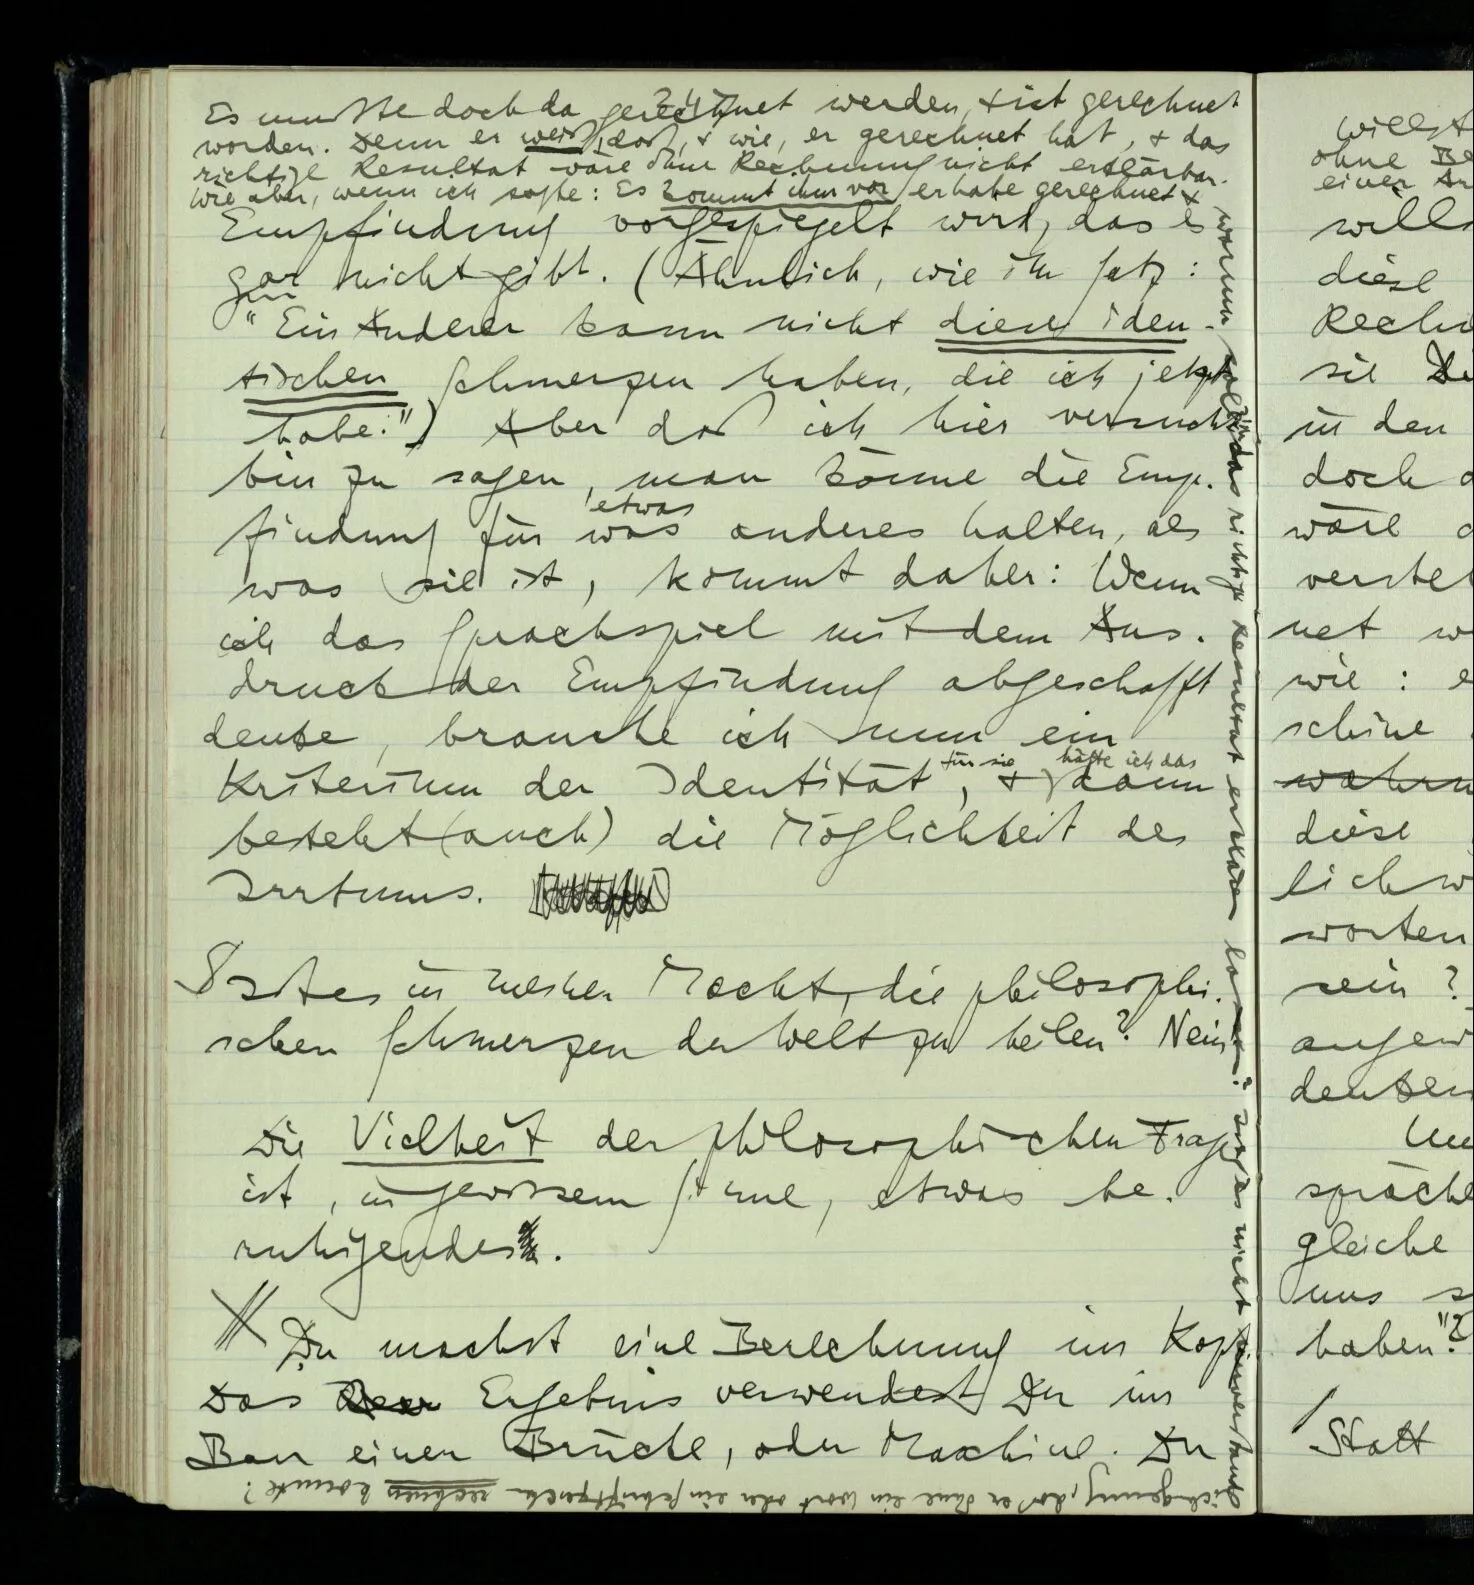 247
Es mußte doch da gerechnet werden, & ist gerechnet
worden. Denn er weiß, daß, & wie, er gerechnet hat, & das
richtige Resultat wäre ohne Rechnung nicht erklärbar.
Wie aber, wenn ich sagte: Es kommt ihm vor, er habe gerechnet &
Empfindung vorgespiegelt wird, das es
gar nicht gibt. (Ähnlich, wie im Satz:
"Ein Anderer kann nicht diese iden-
tischen Schmerzen haben, die ich jetzt
habe.") Aber daß ich hier versucht
bin zu sagen, man könne die Emp-
etwas
findung für was anderes halten, als
was sie ist, kommt daher: Wenn
ich das Sprachspiel mit dem Aus-
druck der Empfindung abgeschafft
denke, brauche ich nun ein
für sie hätte ich das
Kriterium der Identität, & dann
besteht (auch) die Möglichkeit des
Irrtums.
S Ist es in meiner Macht, die philosophi-
schen Schmerzen der Welt zu heilen? Nein
Die Vielheit der philosophischen Fragen
ist, in gewissem Sinne, etwas be-
ruhigendes.
Du machst eine Berechnung im Kopf.
Das Ergebnis verwendest Du im
Bau einer Brücke, oder Maschine. Du
warum soll sich das richtige Resultat erklären lassen? Ist es nicht unverständ-
lich genug, daß er ohne ein Wort oder ein Schriftzeichen rechnen konnte?
willst
ohne Be
einer Ar
wills
diese
Rechn
sie Di
in den
doch d
wäre d
verstel
net w
wie: e
schine
wahrn
diese
lich w
worten
sein?
angew
denken
Un
sprache
gleiche
uns s
haben"?
Statt